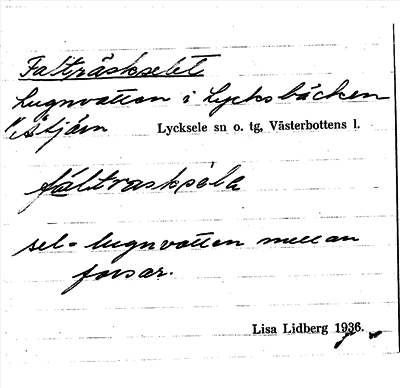 Fatträskselet
Lugnvatten i Lycksbäcken
Lycksele sn o. tg, Västerbottens l.
fáltraskséla
sel = lugnvatten mellan
forsar.
Lisa Lidberg 1936.